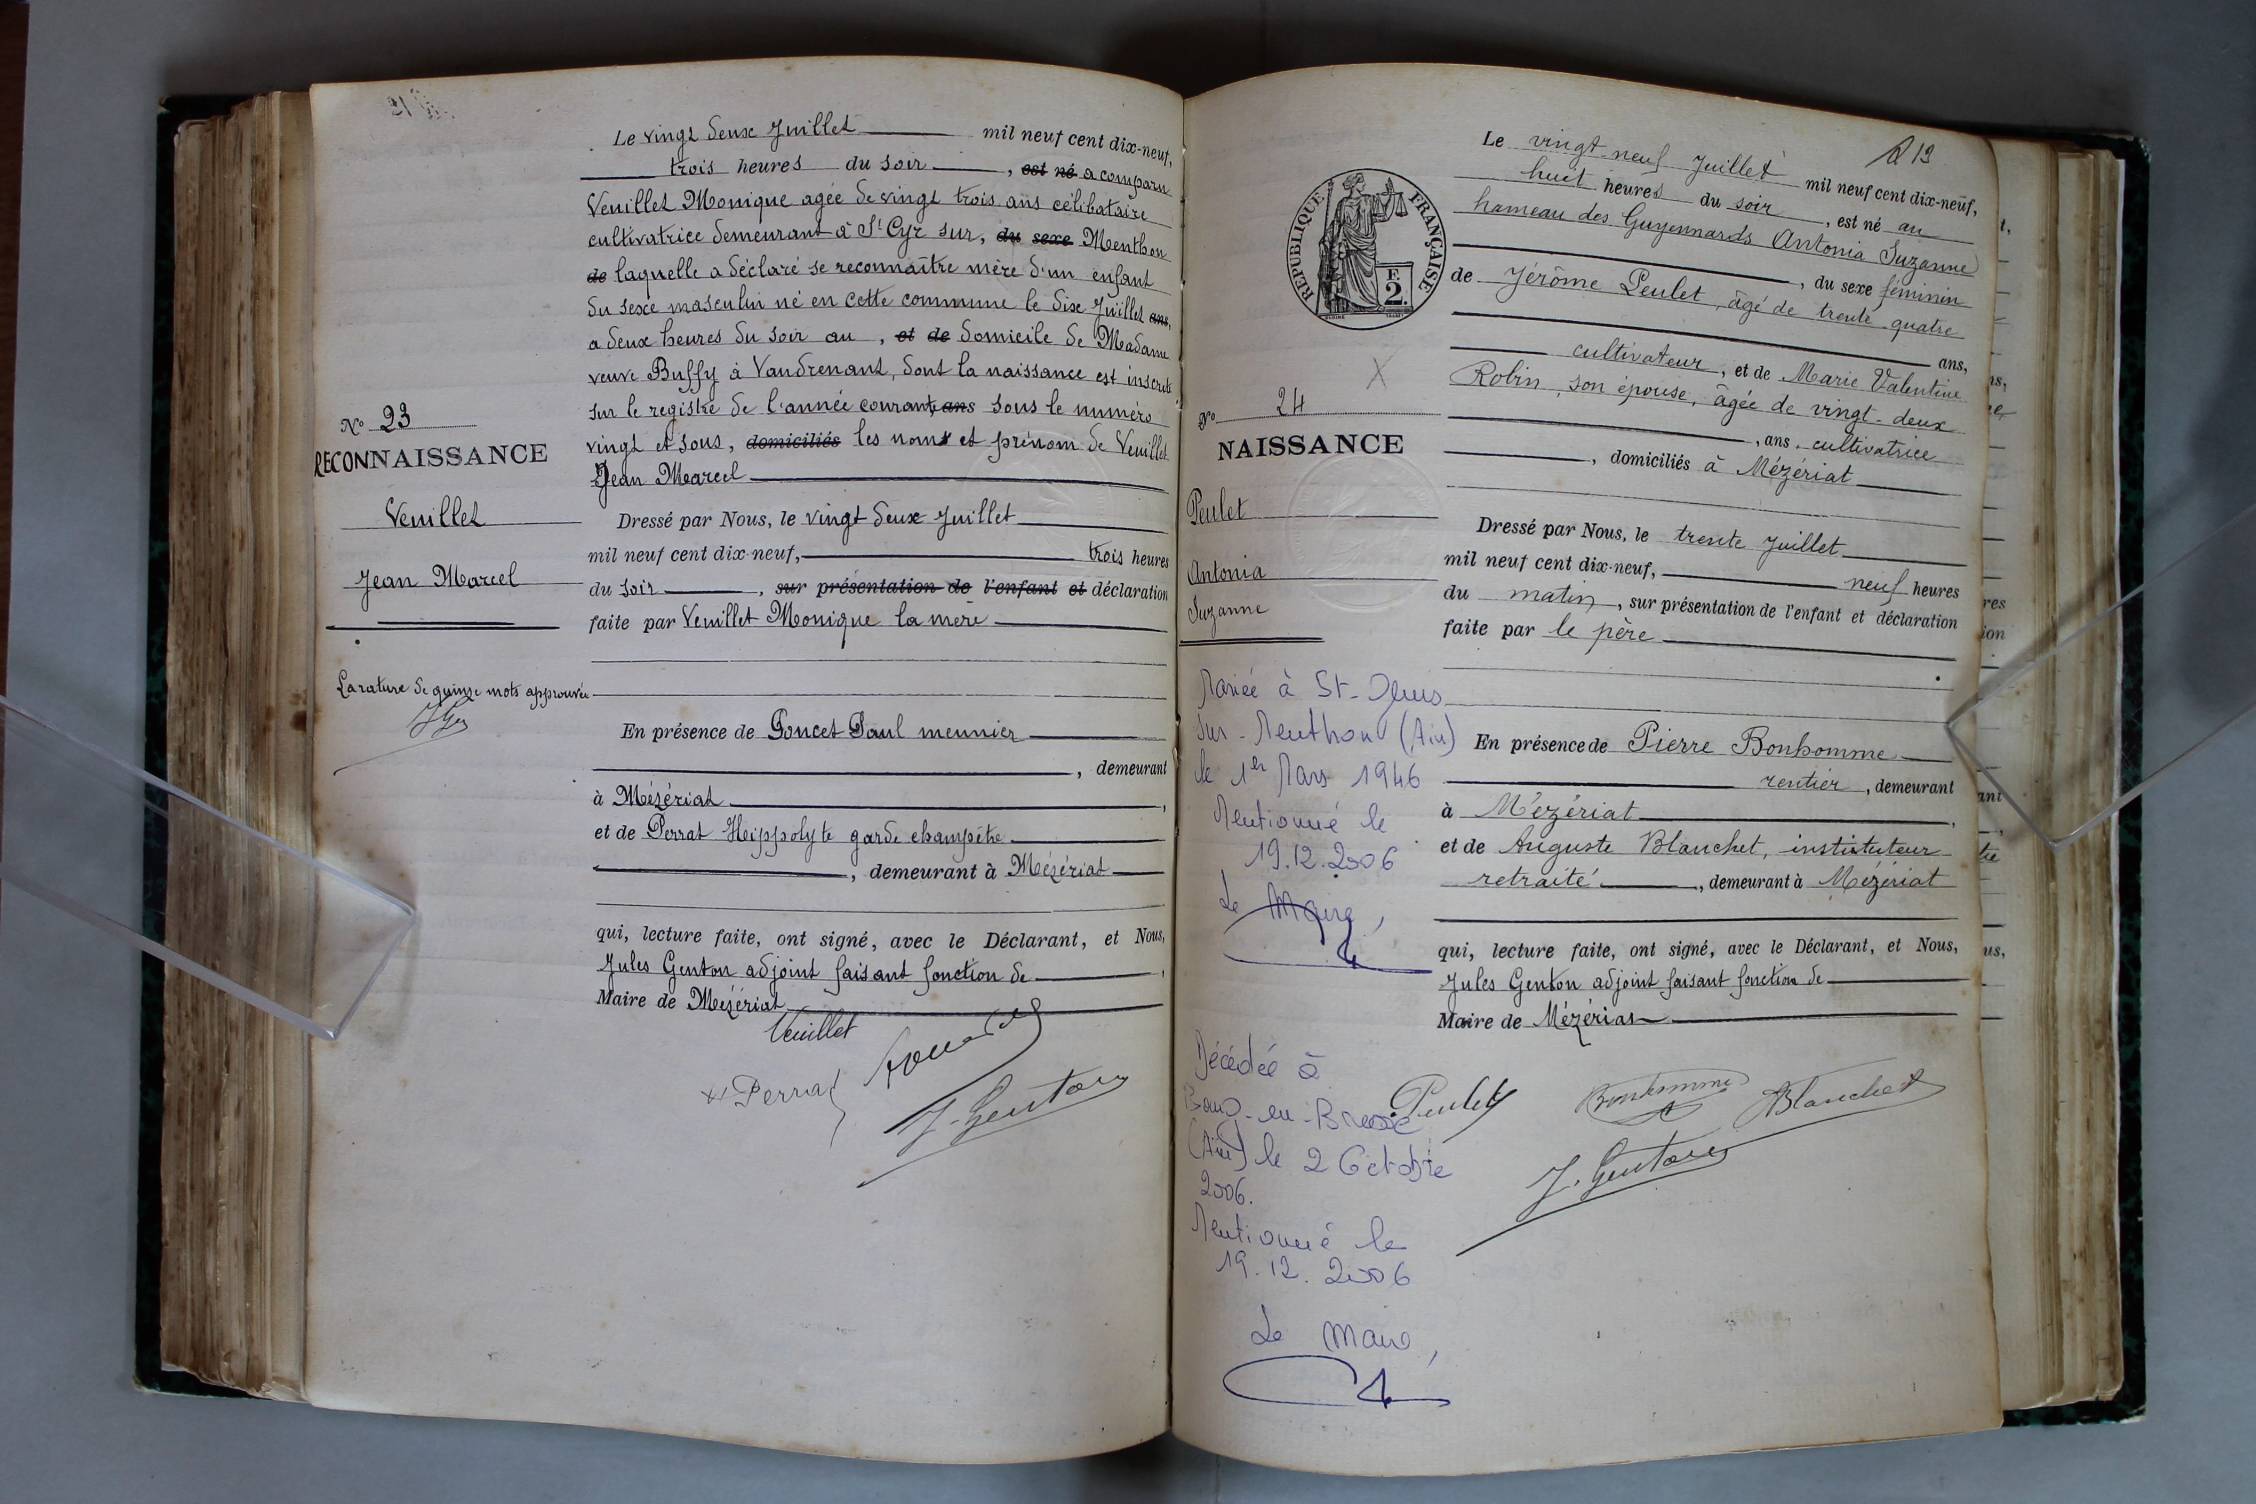 Le vingt deux Juillet mil neuf cent dix-neuf,
trois heures du soir, est né a comparu
Veuillet Monique agée de vingt trois ans célibataire
cultivatrice demeurant à St Cyr sur, du sexe Menthon
de laquelle a déclaré se reconnaître mère d'un enfant
du sexe masculin né en cette commune le dix Juillet ans,
a deux heures du soir au, et de domicile de Madame
veuve Buffy à Vandrenant, dont la naissance est inscrite
sur le registre de l'année courant, ans sous le numéro
vingt et sous, domiciliés les noms et prénom de Veuillet
Jean Marcel
No 23
RECONNAISSANCE
Veuillet
Jean Marcel
Dressé par Nous, le vingt deux Juillet
mil neuf cent dix-neuf, trois heures
du soir, sur présentation de l'enfant et déclaration
faite par Veuillet Monique la mère
La rature de quinze mots approuvée
En présence de Poncet Paul meunier
, demeurant
à Mézériat,
et de Perrat Hippolyte garde champêtre
, demeurant à Mézériat
qui, lecture faite, ont signé, avec le Déclarant, et Nous,
Jules Genton adjoint faisant fonction de,
Maire de Mézériat
Veuillet
Perrat
J. Genton
R 13
Le vingt-neuf Juillet mil neuf cent dix-neuf,
huit heures du soir, est né au
hameau des Guyennards Antonia Suzanne
, du sexe féminin
de Jérôme Peulet, âgé de trente quatre
ans,
cultivateur, et de Marie Valentine
Robin, son épouse, âgée de vingt-deux
, ans, cultivatrice
, domiciliés à Mézériat
RÉPUBLIQUE FRANÇAISE
F.
2.
X
No 24
NAISSANCE
Peulet
Antonia
Suzanne
Dressé par Nous, le trente Juillet
mil neuf cent dix-neuf, neuf heures
du matin, sur présentation de l'enfant et déclaration
faite par le père
Mariée à St-
sur-Menthon (Ain)
le 1er Mars 1946
Mentionné le
19.12.2006
Le Maire,
En présence de Pierre Bonhomme
rentier, demeurant
à Mézériat,
et de Auguste Blanchet, instituteur
retraité, demeurant à Mézériat
qui, lecture faite, ont signé, avec le Déclarant, et Nous,
Jules Genton adjoint faisant fonction de
Maire de Mézériat
Peulet
Bonhomme
Blanchet
J. Genton
Décédée à
Bourg-en-Bresse
(Ain) le 2 Octobre
2006.
Mentionné le
19.12.2006
Le Maire,